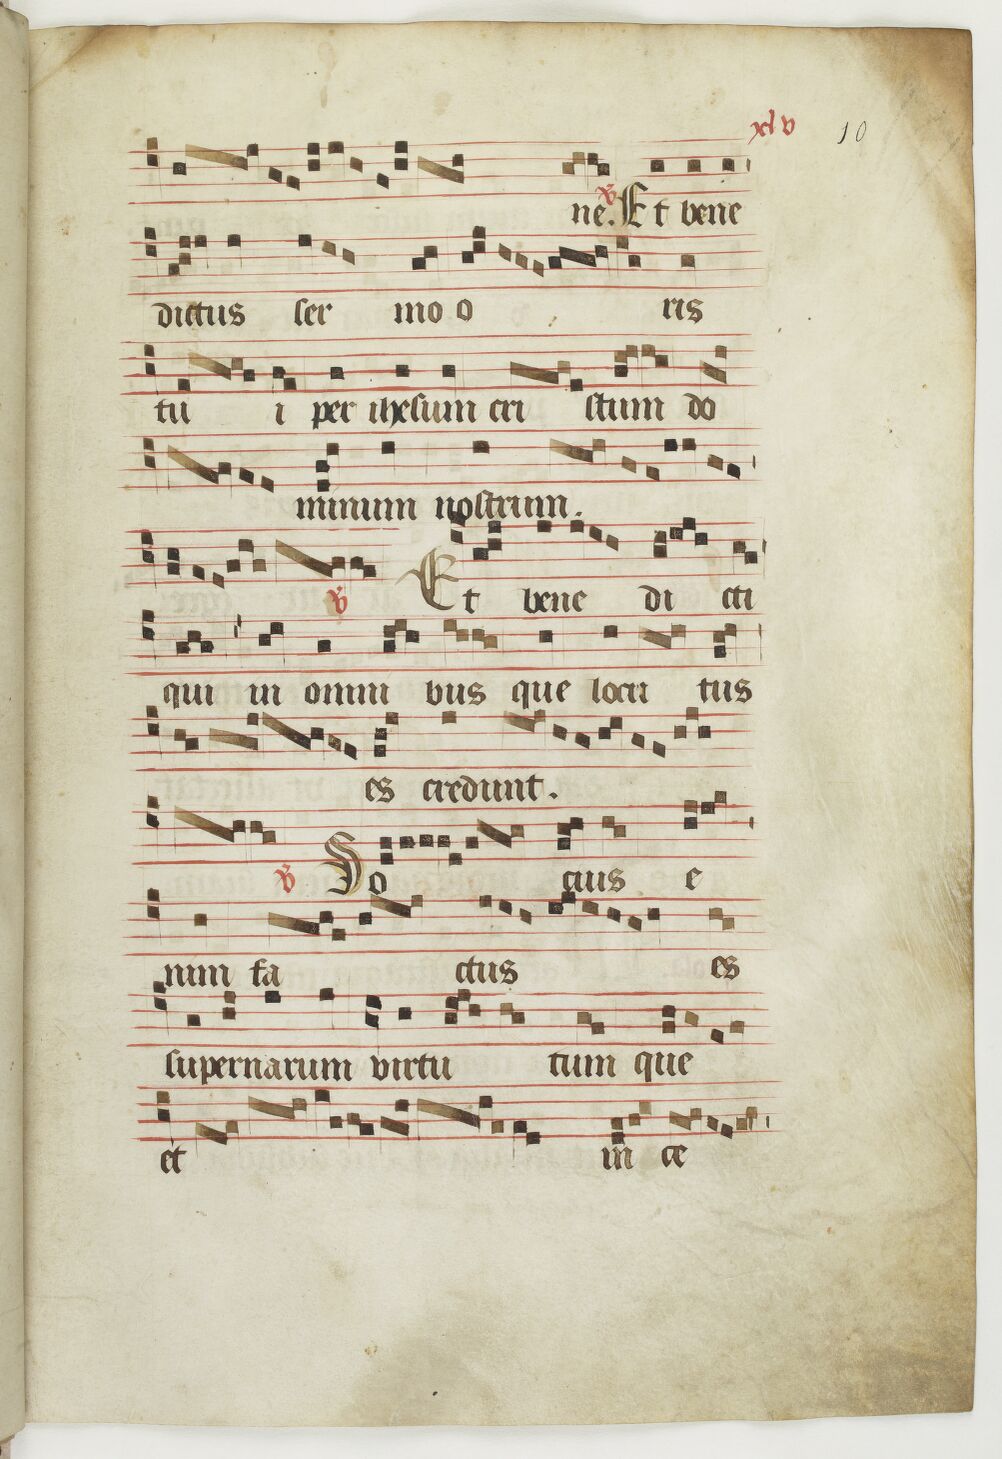 xlv 10
ne. ꝟ Et bene
dictus ser mo o ris
tu i per ihesum cri stum do
minum nostrum.
ꝟ Et bene di cti
qui in omni bus que locu tus
es credunt.
ꝟ So cius e
nim fa ctus es
supernarum virtu tum que
et in ce